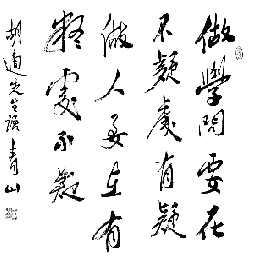 做學問要在
不疑處有疑
做人要在有
疑處不疑
胡適先生語青山